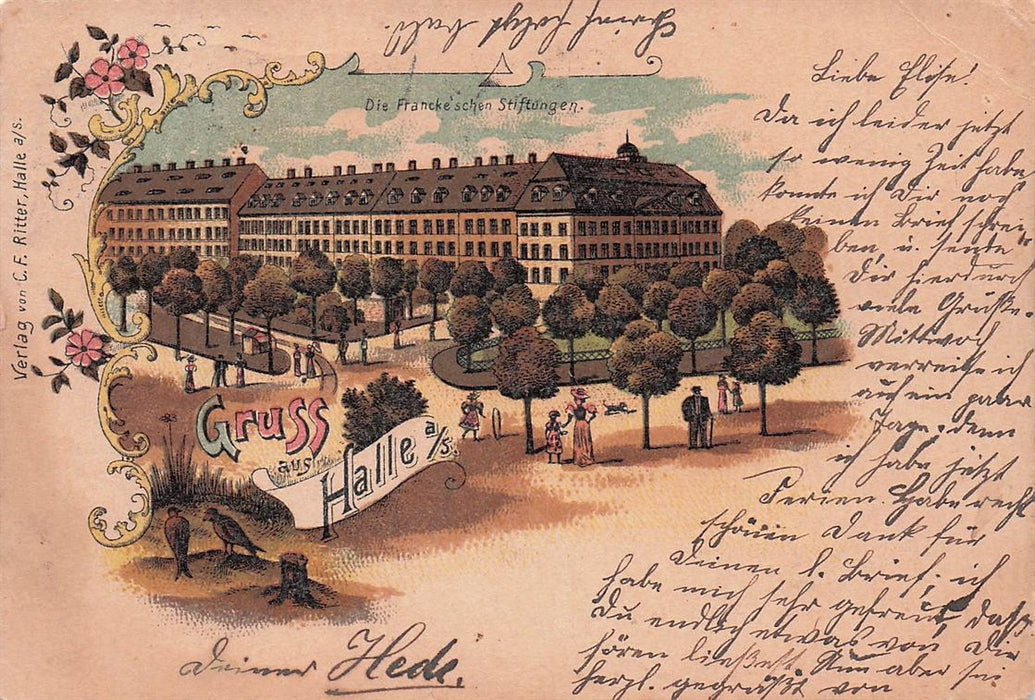 Die Francke'schen Stiftungen.
Verlag von C. F. Ritter, Halle a/S.
Gruss
aus
Halle a/S.
Liebe Elise!
Da ich leider jetzt
so wenig Zeit habe
konnte ich Dir noch
keinen Brief schrei-
ben, u. sende
Dir hierdurch
viele Grüße.
Mittwoch
verreise ich
auf ein paar
Tage, denn
ich habe jetzt
Ferien. Habe recht
schönen Dank für
Deinen l. Brief; ich
habe mich sehr gefreut, daß
Du endlich etwas von Dir
hören ließest. Nun aber sei
herzl. gegrüßt von
Deiner Hede.